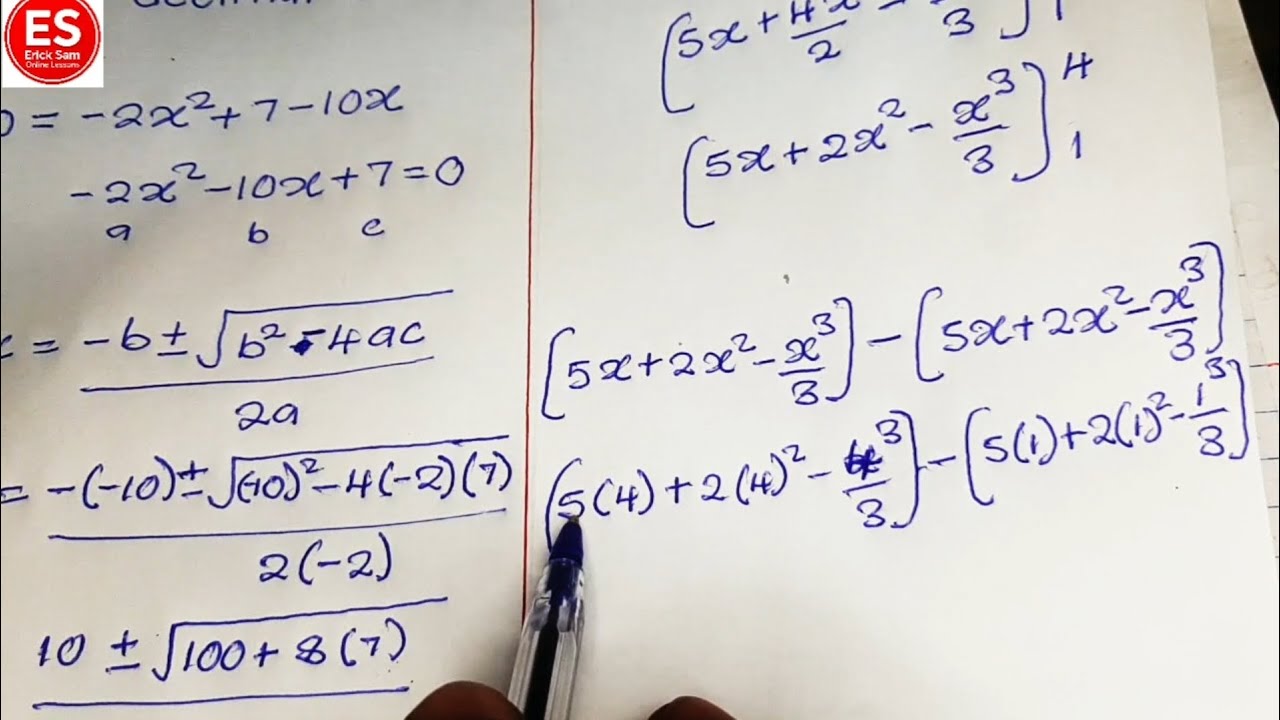 ES
Erick Sam
Online Lessons
0 = -2x² + 7 - 10x
-2x² - 10x + 7 = 0
a b c
x = (-b ± √(b² - 4ac)) / 2a
= (-(-10) ± √((-10)² - 4(-2)(7))) / 2(-2)
10 ± √(100 + 8(7))
[5x + 4x/2 - /3]1
[5x + 2x² - x³/3]⁴₁
[5x + 2x² - x³/3] - [5x + 2x² - x³/3]
[5(4) + 2(4)² - 4³/3] - [5(1) + 2(1)² - 1³/3]